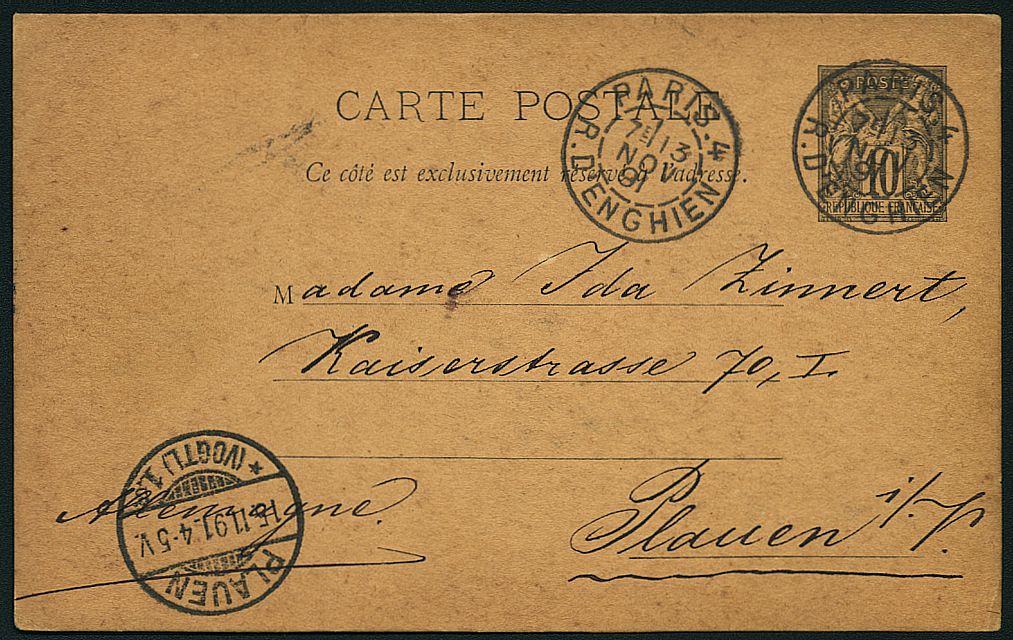 CARTE POSTALE
Ce côté est exclusivement réservé à l'adresse.
PARIS.4
7E/13
NOV
91
R. D'ENGHIEN
POSTES
10
REPUBLIQUE FRANÇAISE
PARIS.4
7E/13
NOV
91
R. D'ENGHIEN
Madame Ida Zinnert,
Kaiserstrasse 70, I.
Plauen i/V.
Allemagne.
PLAUEN
15.11.91.4-5V.
* (VOGTL) 1.